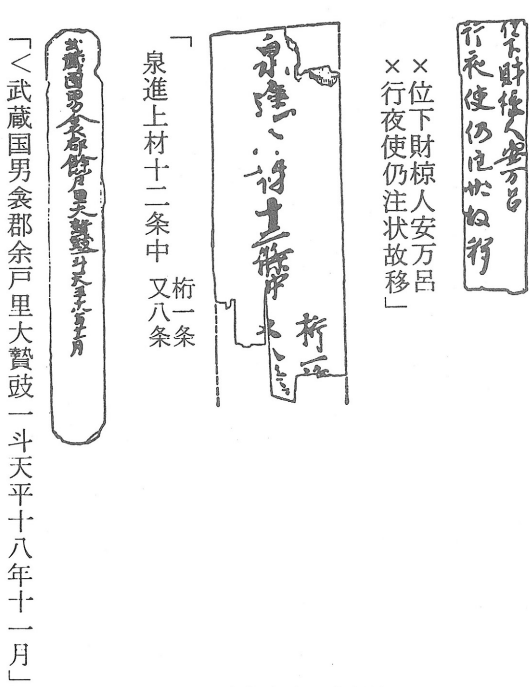 位下財椋人安万呂
行夜使仍注状故移
×位下財椋人安万呂
×行夜使仍注状故移」
泉進上材十二条中
桁一条
又八条
「泉進上材十二条中 桁一条
又八条
武蔵国男衾郡余戸里大贄豉一斗天平十八年十一月
「＜武蔵国男衾郡余戸里大贄豉一斗天平十八年十一月」